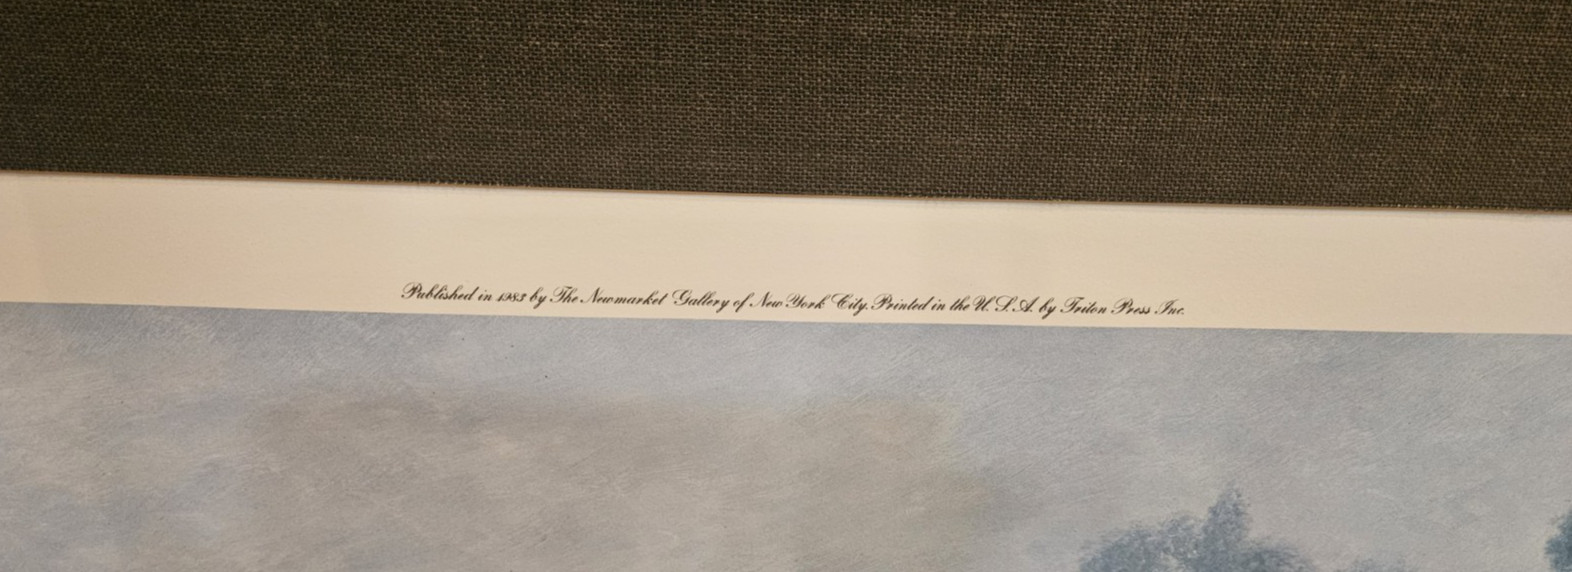 Published in 1983 by The Newmarket Gallery of New York City. Printed in the U. S. A. by Triton Press Inc.